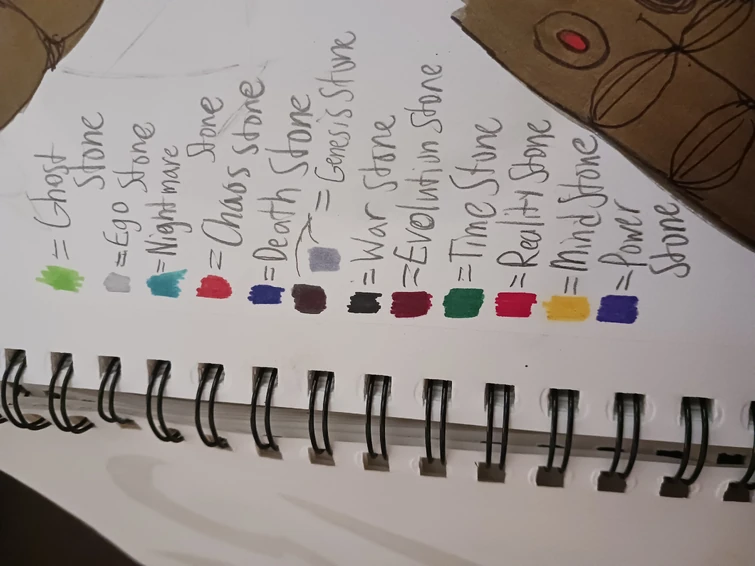 = Ghost
Stone
= Ego Stone
= Nightmare
Stone
= Chaos Stone
= Death Stone
= Genesis Stone
= War Stone
= Evolution Stone
= Time Stone
= Reality Stone
= Mind Stone
= Power
Stone